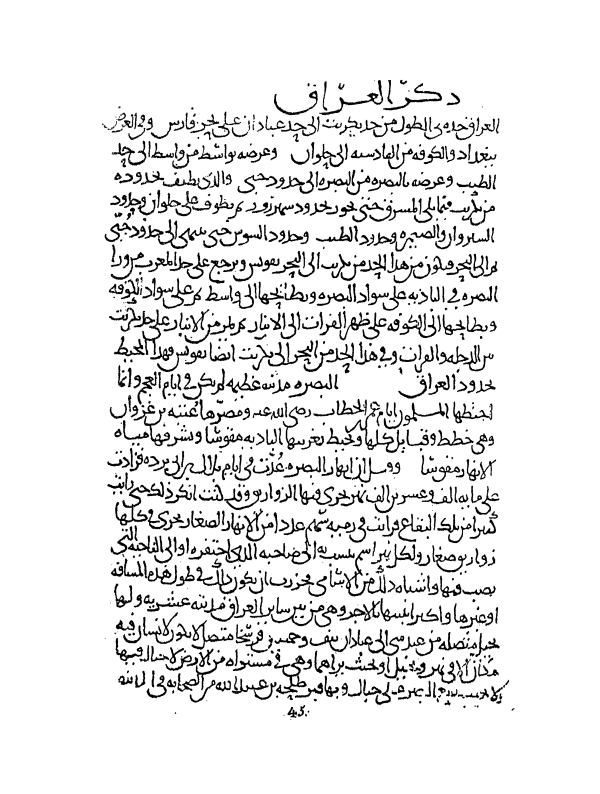 ذكر العراق
العراق حده في الطول من حد تكريت الى حد عبادان على بحر فارس وفي العرض
ببغداد والكوفه من القادسيه الى حلوان وعرضه بواسط من واسط الى حد
الطيب وعرضه بالبصره من البصره الى حدود جبى والذى يطيف بحدوده
من تكريت فيما يلى المشرق حتى يجوز بحدود سهرزور ثم يطوف على حلوان وحدود
السيروان والصيمره وحدود الطيب وحدود السوس حتى ينتهى الى حدود جبى
ثم الى البحر فيكون من هذا الحد من تكريت الى البحر تقويس ويرجع على حد المغرب من ورا
البصره في الباديه على سواد البصره وبطايحها الى واسط ثم على سواد الكوفه
وبطايحها الى الكوفه على ظهر الفرات الى الانبار ثم يمر من الانبار على حد تكريت
بين الدجله والفرات وفي هذا الحد من البحر الى تكريت ايضا تقويس فهذا المحيط
بحدود العراق البصره مدينه عظيمه لم يكن في ايام العجم وانما
اختطها المسلمون ايام عمر بن الخطاب رضى الله عنه ومصرها عتبه بن غزوان
وهى خطط وقبايل كلها ويحيط بغربيها الباديه مقوسا وبشرقها مياه
الانهار مفوشا وقيل ان انهار البصره عدت في ايام بلال بن ابى برده فزادت
على مايه الف وعشرين الف نهر يجرى فيها الزواريق وقد كنت انكر ذلك حتى رايت
كثيرا من تلك البقاع فرايت في رميه سهم عددا من الانهار الصغار يجرى في كلها
زواريق صغار ولكل نهر اسم ينسب به الى صاحبه الذى احتفره او الى الناحيه التى
يصب فيها واشباه ذلك من الاسامى فجوزت ان يكون ذلك في طول هذه المسافه
او عرضها واكثر ابنيتها بالاجر وهى من بين ساير العراق مدينه عشريه ولها
نخيل متصله من عبدسى الى عبادان نيف وخمسين فرسخا متصلا لا يكون الانسان فيه
بمكان الا في نهر ونخيل او بحيث يراهما وهى في مستواه من الارض لا جبال فيها
ولا بحيث البصر على جبال وبها قبر طلحه بن عبيد الله من الصحابه في المدينه
45.